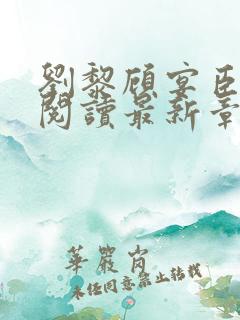 劉黎頎宴臣
閱讀最新章
華嚴崗
未经同意禁止转载